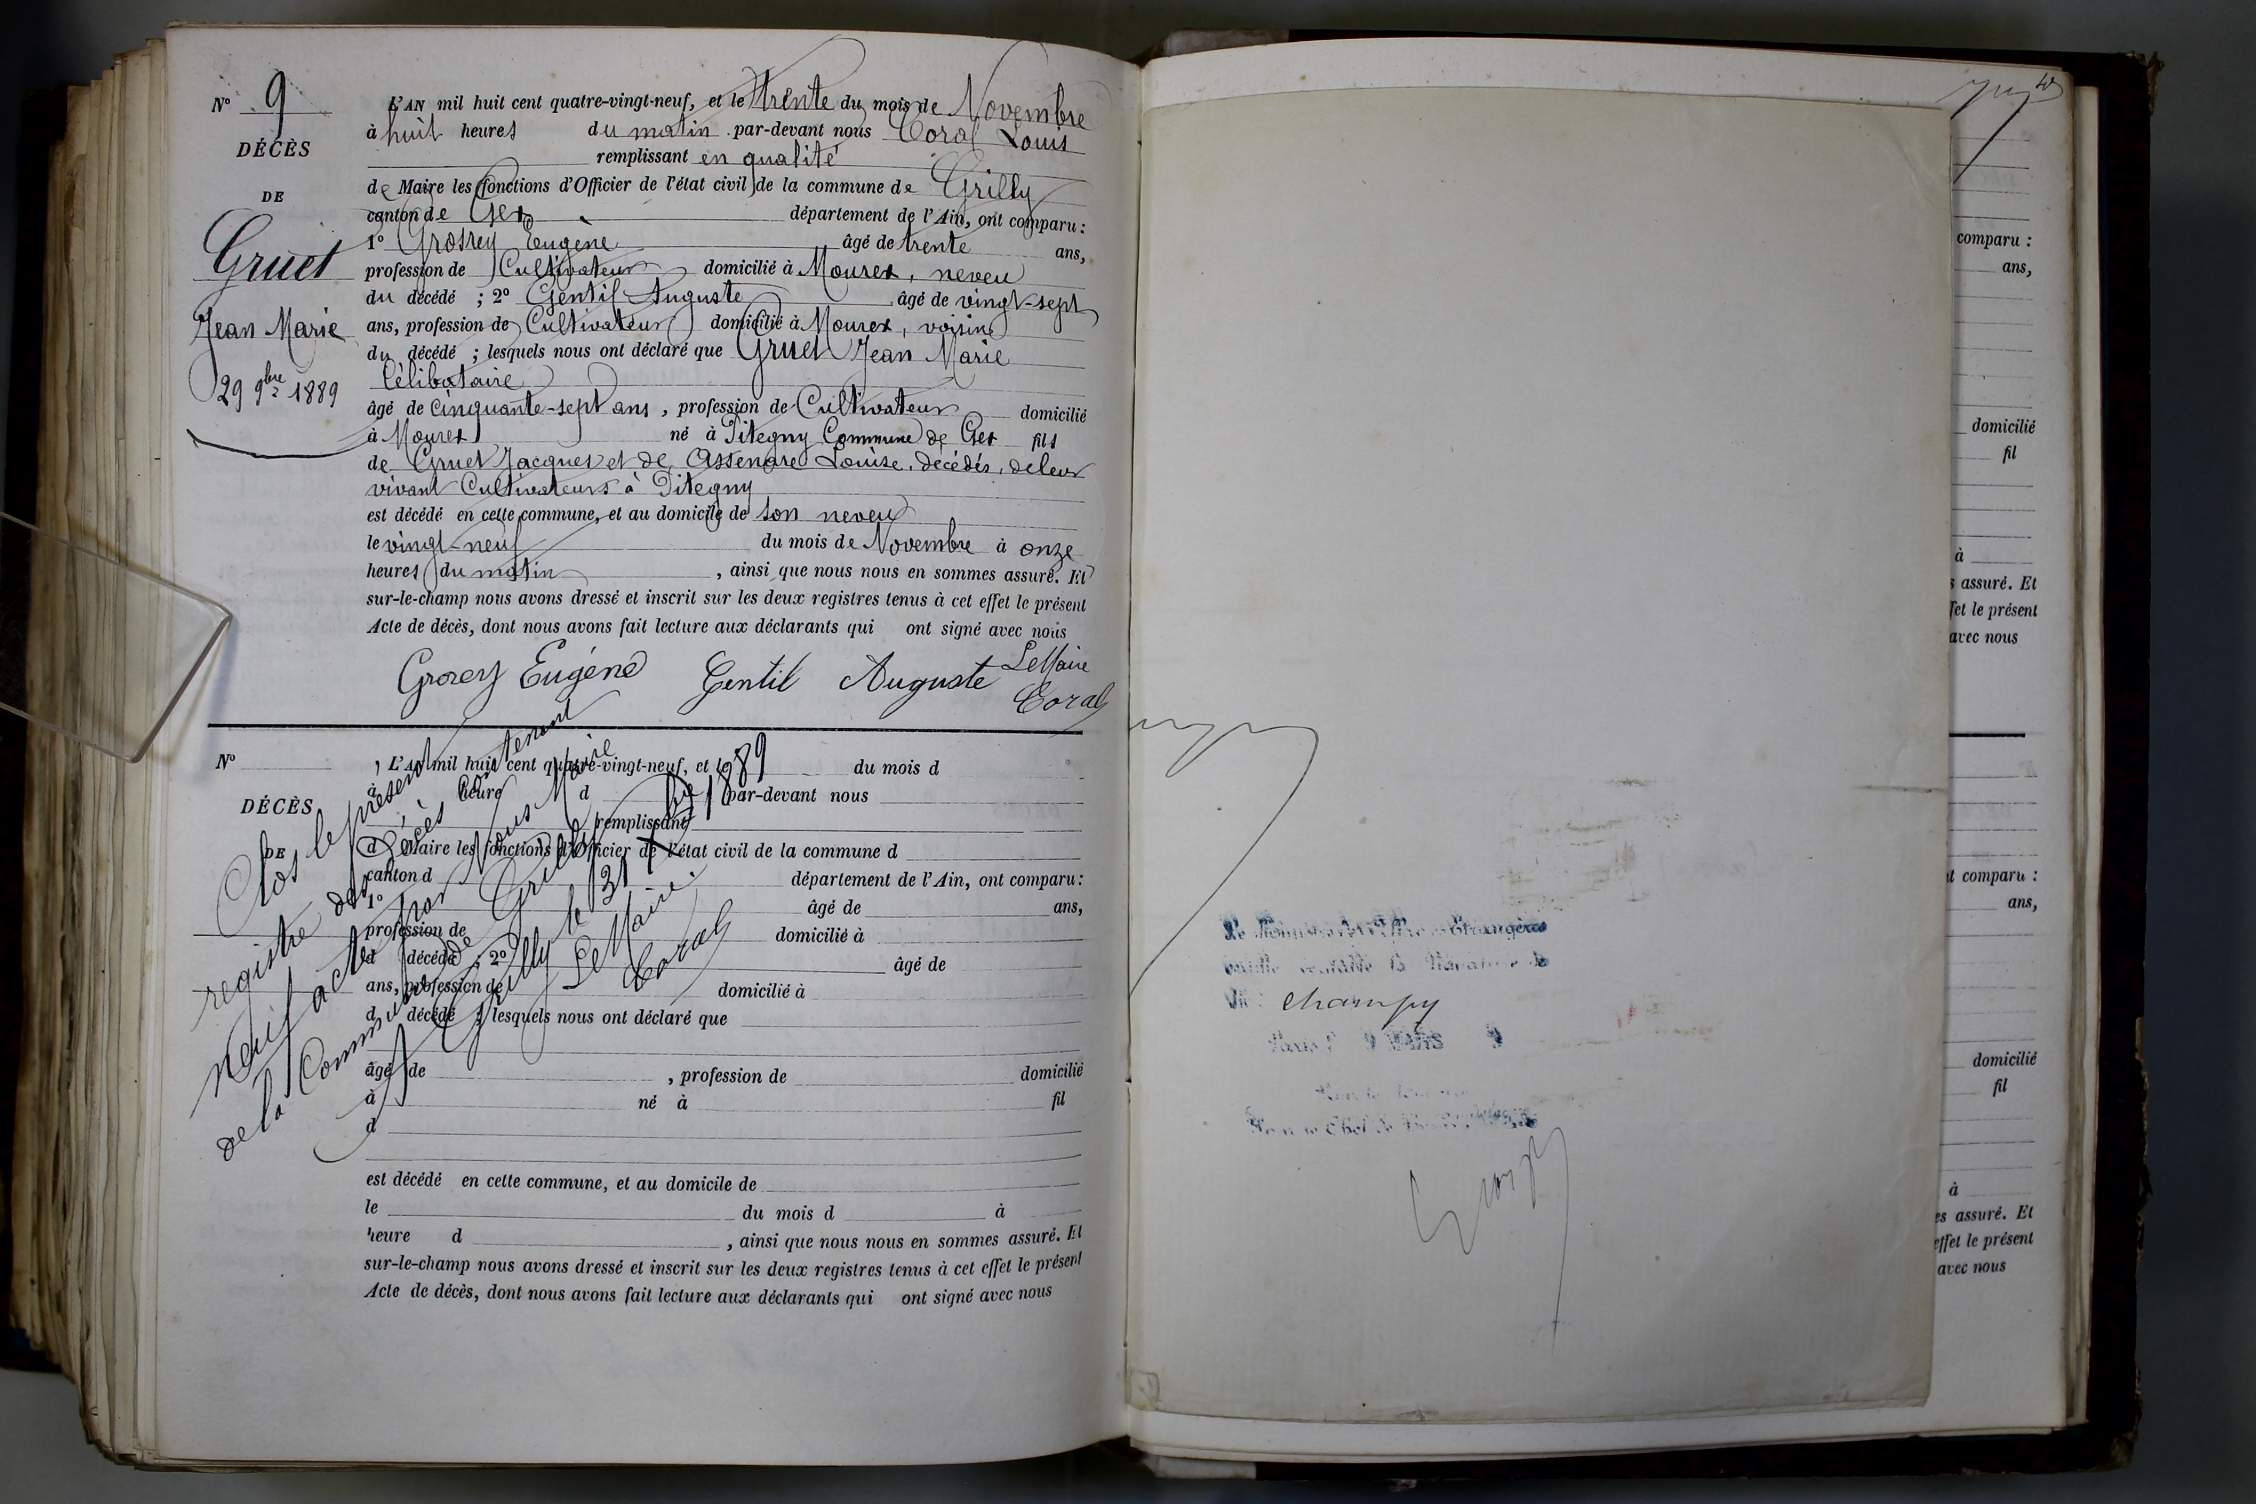 N° 9
DÉCÈS
DE
Gruet
Jean Marie
29 9bre 1889
L'AN mil huit cent quatre-vingt-neuf, et le trente du mois de Novembre
à huit heures du matin par-devant nous Coral Louis
remplissant en qualité
de Maire les fonctions d'Officier de l'état civil de la commune de Grilly
canton de Gex département de l'Ain, ont comparu :
1° Grosrey Eugène âgé de trente ans,
profession de Cultivateur domicilié à Mourex, neveu
du décédé ; 2° Gentil Auguste âgé de vingt-sept
ans, profession de Cultivateur domicilié à Mourex, voisin
du décédé ; lesquels nous ont déclaré que Gruet Jean Marie
Célibataire
âgé de cinquante-sept ans, profession de Cultivateur domicilié
à Mourex né à Pitegny Commune de Gex fils
de Gruet Jacques et de Assenare Louise, décédés, de leur
vivant Cultivateurs à Pitegny
est décédé en cette commune, et au domicile de son neveu
le vingt-neuf du mois de Novembre à onze
heures du matin , ainsi que nous nous en sommes assuré. Et
sur-le-champ nous avons dressé et inscrit sur les deux registres tenus à cet effet le présent
Acte de décès, dont nous avons fait lecture aux déclarants qui ont signé avec nous
Grorey Eugéne Gentil Auguste Le Maire
Coral
N°
DÉCÈS
DE
L'AN mil huit cent quatre-vingt-neuf, et le du mois d
à heure d par-devant nous
remplissant
d Maire les fonctions d'Officier de l'état civil de la commune d
canton d département de l'Ain, ont comparu :
1° âgé de ans,
profession de domicilié à
d décédé ; 2° âgé de
ans, profession de domicilié à
d décédé ; lesquels nous ont déclaré que
âgé de , profession de domicilié
à né à fil
d
est décédé en cette commune, et au domicile de
le du mois d à
heure d , ainsi que nous nous en sommes assuré. Et
sur-le-champ nous avons dressé et inscrit sur les deux registres tenus à cet effet le présent
Acte de décès, dont nous avons fait lecture aux déclarants qui ont signé avec nous
Clos le présent
registre des Décès contenant
neuf actes par Nous Maire
de la Commune de Grilly
Grilly le 31 Xbre 1889
Le Maire.
Coral
champy
comparu :
ans,
domicilié
fil
à
assuré. Et
le présent
avec nous
comparu :
ans,
domicilié
fil
à
assuré. Et
effet le présent
avec nous